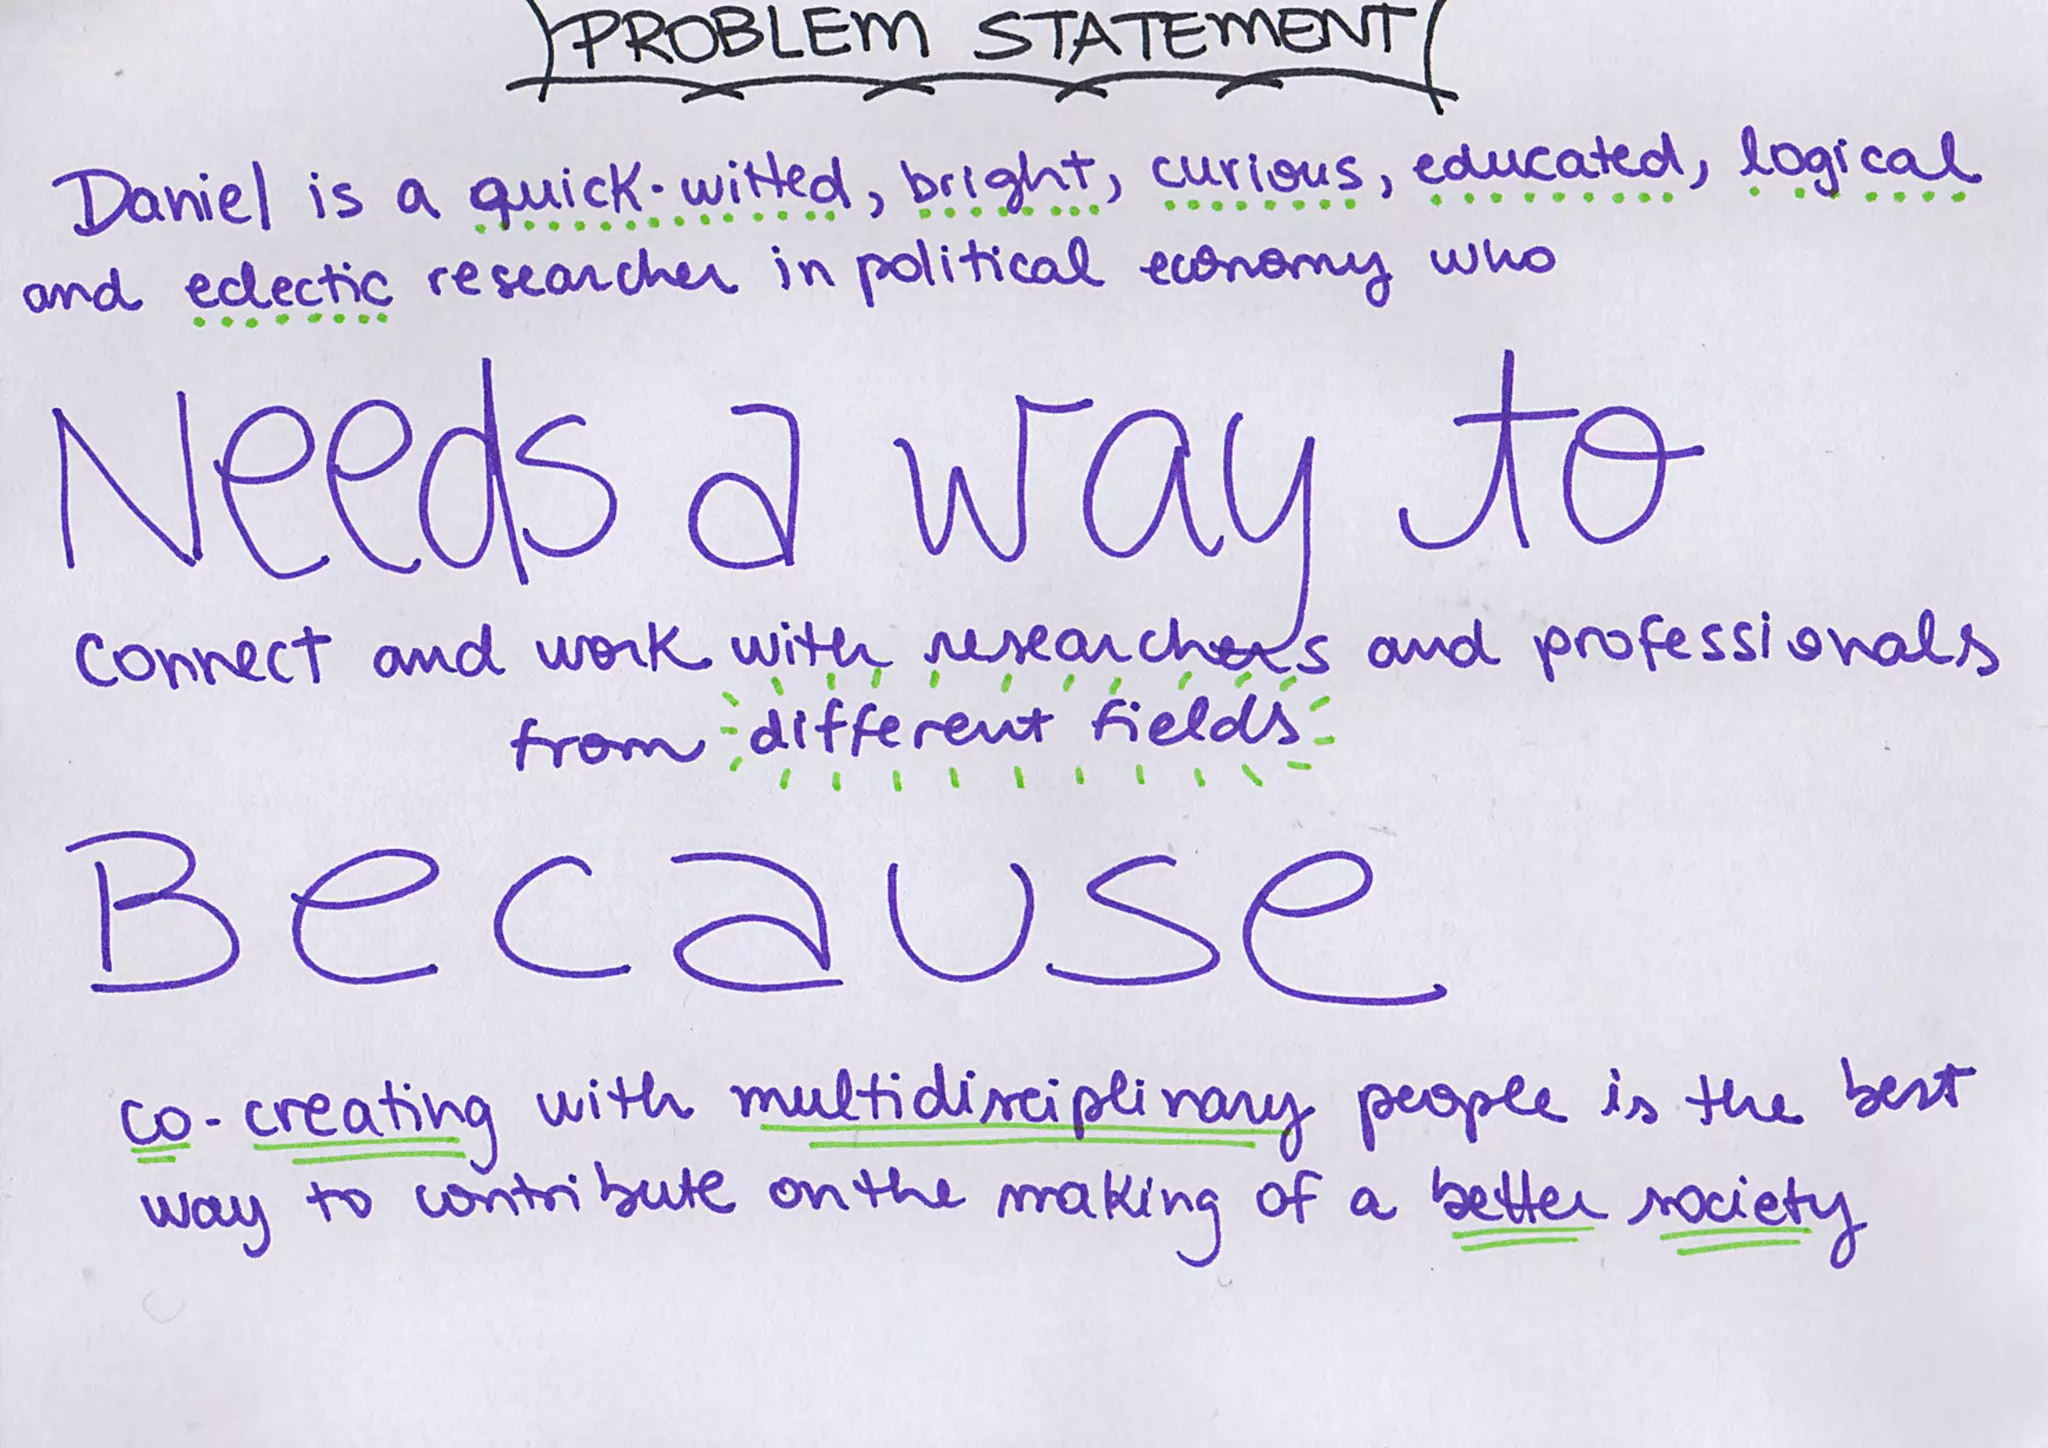 PROBLEM STATEMENT
Daniel is a quick-witted, bright, curious, educated, logical
and eclectic researcher in political economy who
Needs a way to
connect and work with researchers and professionals
from different fields
Because
co-creating with multidisciplinary people is the best
way to contribute on the making of a better society